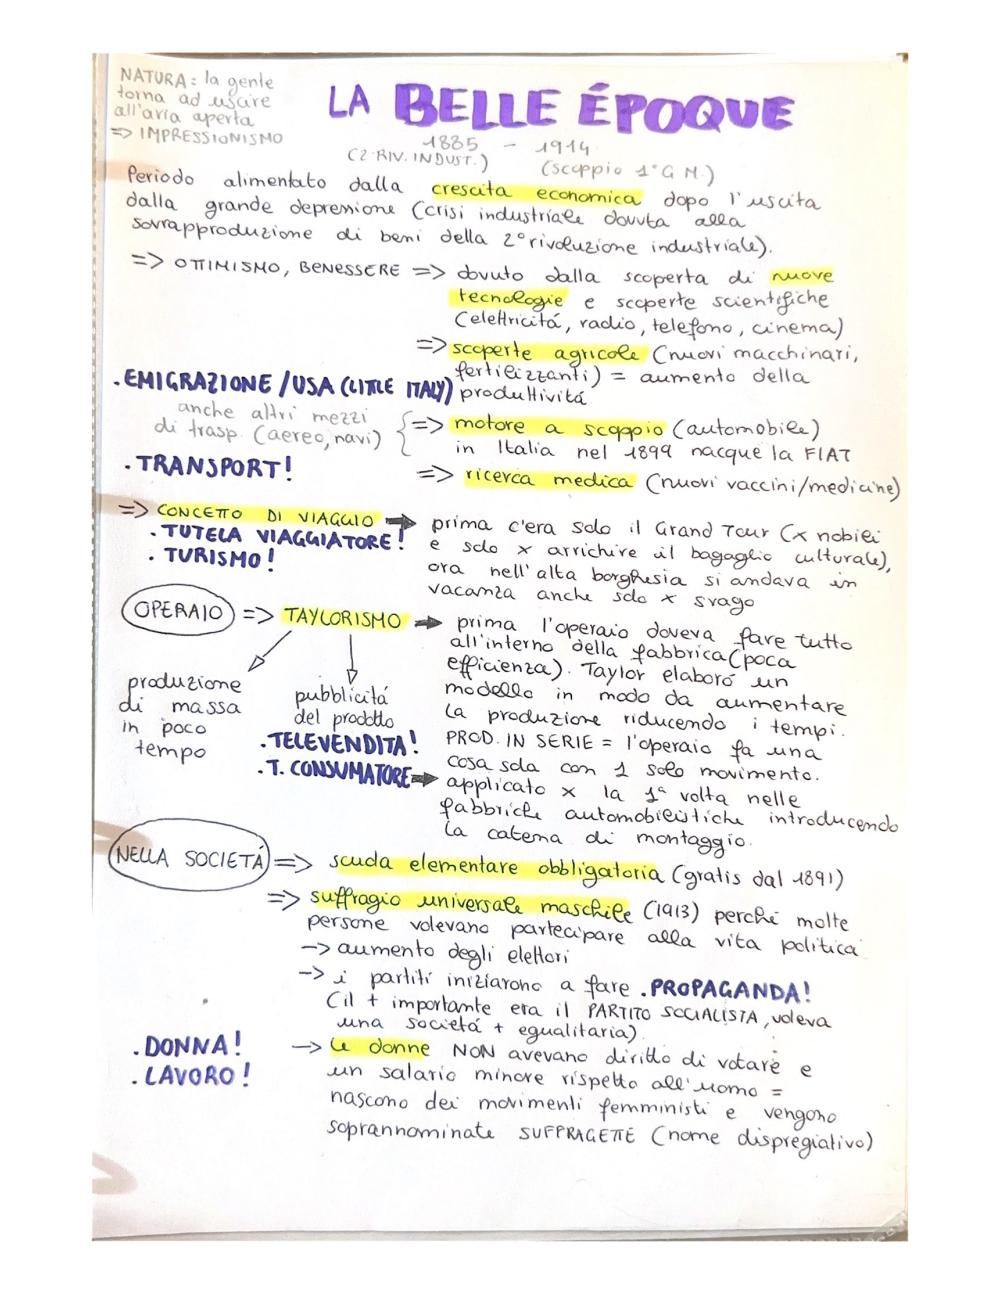 NATURA: la gente
torna ad uscire
all'aria aperta
=> IMPRESSIONISMO
LA BELLE ÉPOQUE
1885 - 1914
(2 RIV. INDUST.) (scoppio 1° G M.)
Periodo alimentato dalla crescita economica dopo l'uscita
dalla grande depressione (crisi industriale dovuta alla
sovrapproduzione di beni della 2° rivoluzione industriale).
=> OTTIMISMO, BENESSERE => dovuto dalla scoperta di nuove
tecnologie e scoperte scientifiche
(elettricitá, radio, telefono, cinema)
=> scoperte agricole (nuovi macchinari,
fertilizzanti) = aumento della
produttivitá
.EMIGRAZIONE / USA (LITTLE ITALY)
anche altri mezzi
di trasp. (aereo, navi)
=> motore a scoppio (automobile)
in Italia nel 1899 nacque la FIAT
.TRANSPORT!
=> ricerca medica (nuovi vaccini/medicine)
=> CONCETTO DI VIAGGIO → prima c'era solo il Grand Tour (x nobili
e solo x arrichire il bagaglio culturale),
ora nell'alta borghesia si andava in
vacanza anche solo x svago
.TUTELA VIAGGIATORE!
.TURISMO!
OPERAIO => TAYLORISMO → prima l'operaio doveva fare tutto
all'interno della fabbrica (poca
efficienza). Taylor elaboró un
modello in modo da aumentare
la produzione riducendo i tempi.
PROD. IN SERIE = l'operaio fa una
cosa sola con 1 solo movimento.
produzione
di massa
in poco
tempo
pubblicitá
del prodotto
.TELEVENDITA!
.T. CONSUMATORE → applicato x la 1ª volta nelle
fabbriche automobilistiche introducendo
la catena di montaggio.
NELLA SOCIETÁ => scuola elementare obbligatoria (gratis dal 1891)
=> suffragio universale maschile (1913) perché molte
persone volevano partecipare alla vita politica
-> aumento degli elettori
-> i partiti iniziarono a fare .PROPAGANDA!
(il + importante era il PARTITO SOCIALISTA, voleva
una societá + egualitaria)
.DONNA!
.LAVORO!
-> le donne NON avevano diritto di votare e
un salario minore rispetto all'uomo =
nascono dei movimenti femministi e vengono
soprannominate SUFFRAGETTE (nome dispregiativo)